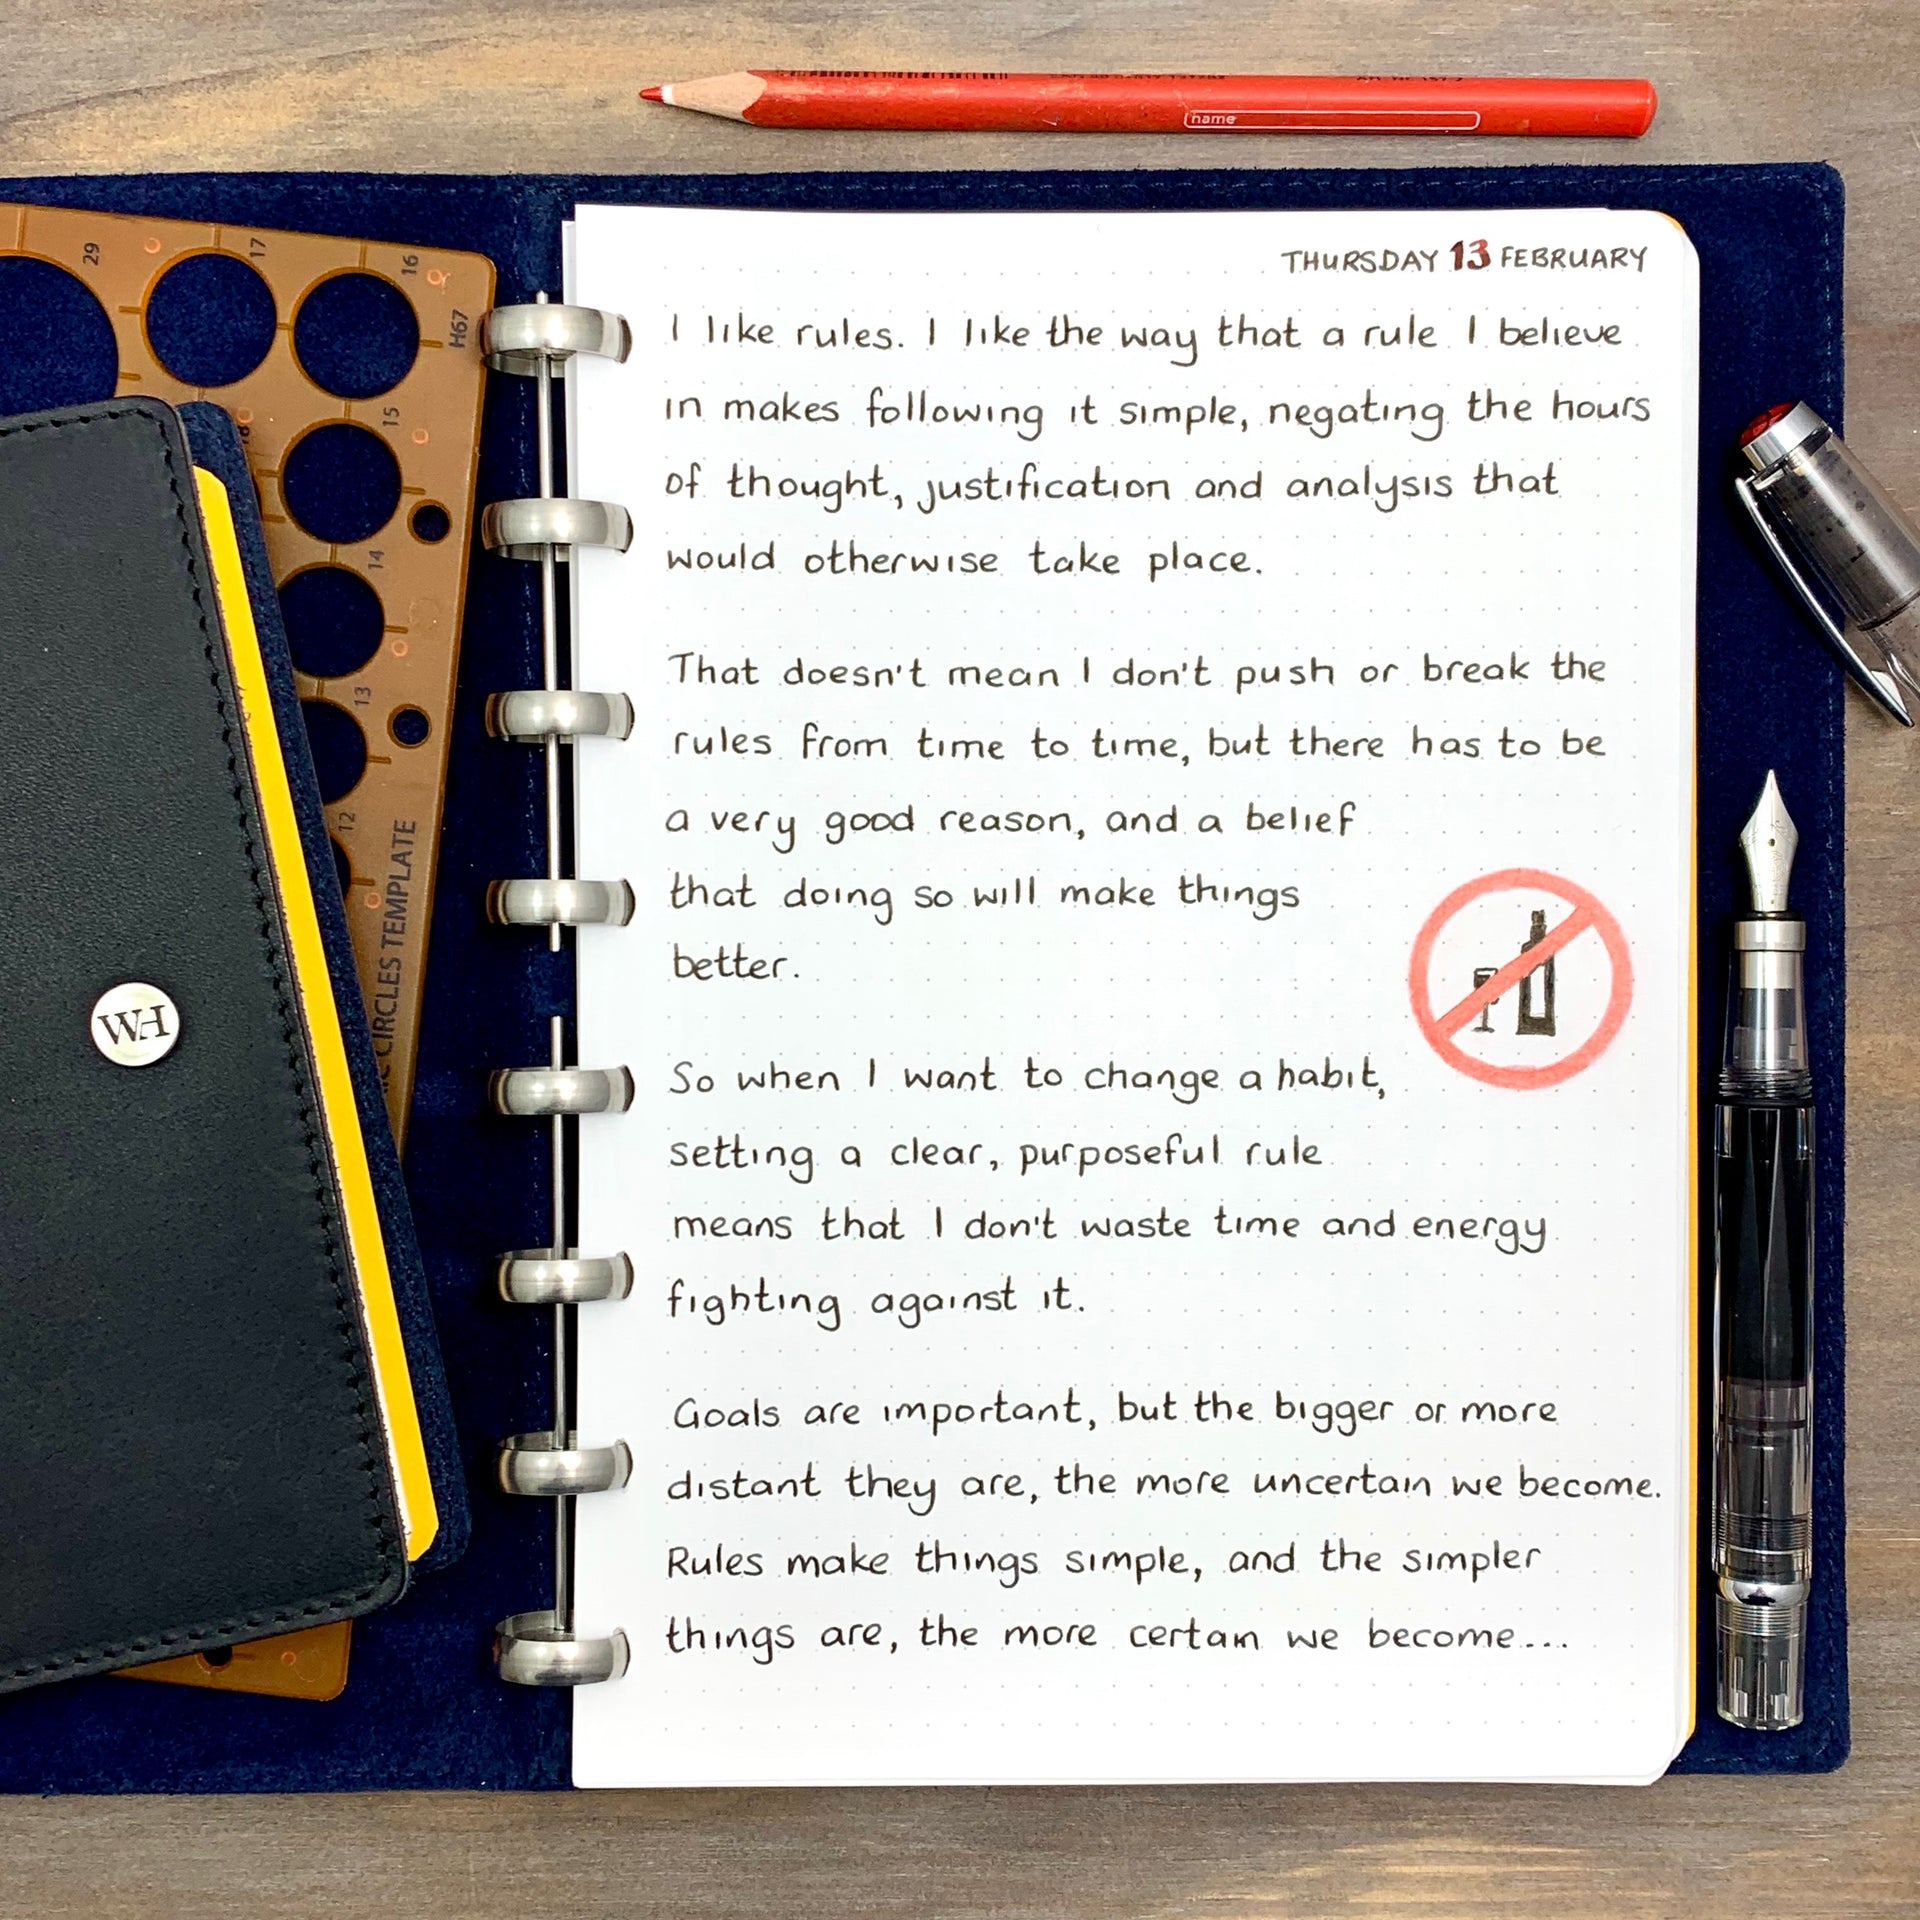 name
29
17
16
H67
15
14
13
12
CIRCLES TEMPLATE
WH
THURSDAY 13 FEBRUARY
I like rules. I like the way that a rule I believe
in makes following it simple, negating the hours
of thought, justification and analysis that
would otherwise take place.
That doesn't mean I don't push or break the
rules from time to time, but there has to be
a very good reason, and a belief
that doing so will make things
better.
So when I want to change a habit,
setting a clear, purposeful rule
means that I don't waste time and energy
fighting against it.
Goals are important, but the bigger or more
distant they are, the more uncertain we become.
Rules make things simple, and the simpler
things are, the more certain we become...